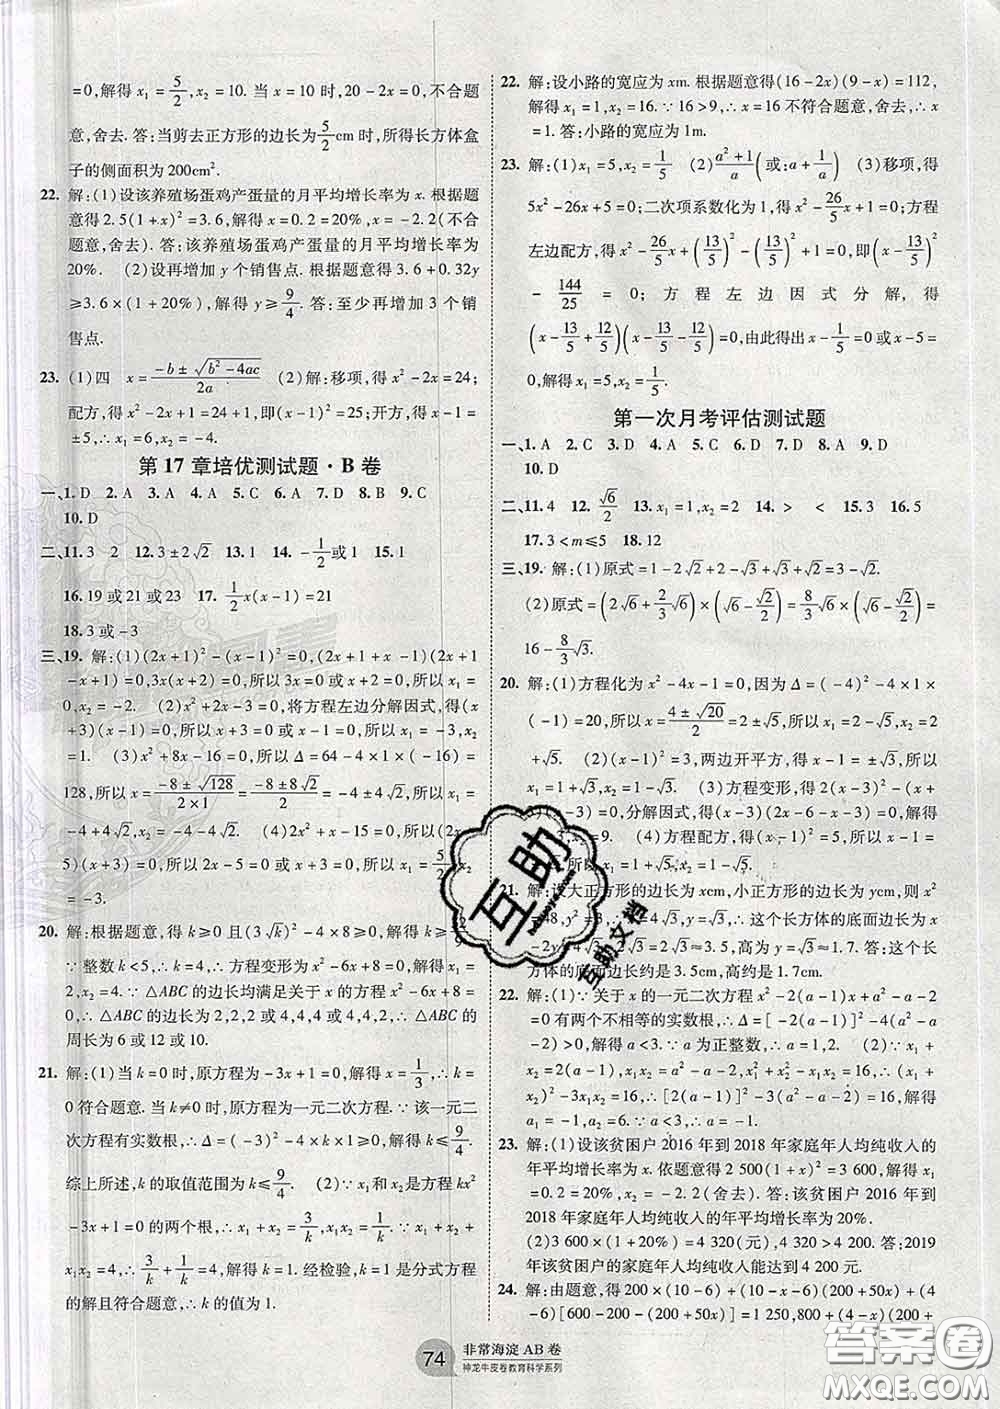 =0,解得 x₁=5/2,x₂=10. 当 x=10 时,20-2x<0,不合题
意,舍去. 答:当剪去正方形的边长为5/2cm 时,所得长方体盒
子的侧面积为200cm².
22. 解:(1)设该养殖场蛋鸡产蛋量的月平均增长率为 x. 根据题
意得 2.5(1+x)²=3.6,解得 x=0.2=20%,x=-2.2(不合
题意,舍去). 答:该养殖场蛋鸡产蛋量的月平均增长率为
20%. (2)设再增加 y 个销售点. 根据题意得 3.6+0.32y
≥3.6×(1+20%),解得 y≥9/4. 答:至少再增加 3 个销
售点.
23. (1)四 x=(-b±√(b²-4ac))/2a (2)解:移项,得 x²-2x=24;
配方,得 x²-2x+1=24+1,即(x-1)²=25;开方,得 x-1=
±5,∴x₁=6,x₂=-4.
第 17 章培优测试题·B 卷
一、1. D 2. A 3. A 4. A 5. A 6. A 7. D 8. B 9. C
10. D
二、11. 3 2 12. 3±2√2 13. 1 14. -1/2或1 15. 1
16. 19 或 21 或 23 17. 1/2x(x-1)=21
18. 3 或-3
三、19. 解:(1)(2x+1)²-(x-1)²=0,(2x+1+x-1)(2x+1
-x+1)=0,3x(x+2)=0,所以 3x=0 或 x+2=0,所以 x₁=
0,x₂=-2. (2)x²+2x-3=0,将方程左边分解因式,得(x
+3)(x-1)=0,所以 x+3=0 或 x-1=0,所以 x₁=-3,x₂
=1. (3)x²+8x-16=0,所以 Δ=64-4×1×(-16)=
128,所以 x=(-8±√128)/(2×1)=(-8±8√2)/2=-4±4√2,所以 x₁=
-4+4√2,x₂=-4-4√2. (4)2x²+x-15=0,所以(2x-
5)(x+3)=0,所以 2x-5=0 或 x+3=0,所以 x₁=5/2,x₂
=-3.
20. 解:根据题意,得 k≥0 且(3√k)²-4×8≥0,解得 k≥
∵整数 k<5,∴k=4,∴方程变形为 x²-6x+8=0,解得 x₁=
2,x₂=4. ∵△ABC 的边长均满足关于 x 的方程 x²-6x+8=
0,∴△ABC 的边长为 2,2,2 或 4,4,4 或 4,4,2,∴△ABC 的
周长为 6 或 12 或 10.
21. 解:(1)当 k=0 时,原方程为-3x+1=0,解得 x=1/3,∴k=
0 符合题意. 当 k≠0 时,原方程为一元二次方程. ∵该一元二
次方程有实数根,∴Δ=(-3)²-4×k×1≥0,解得 k≤9/4.
综上所述,k 的取值范围为 k≤9/4. (2)∵x₁ 和 x₂ 是方程 kx²
-3x+1=0 的两个根,∴x₁+x₂=3/k,x₁x₂=1/k. ∵x₁+x₂+
x₁x₂=4,∴3/k+1/k=4,解得 k=1. 经检验,k=1 是分式方程
的解且符合题意,∴k 的值为 1.
22. 解:设小路的宽应为 xm. 根据题意得(16-2x)(9-x)=112,
解得 x₁=1,x₂=16. ∵16>9,∴x=16 不符合题意,舍去,∴x
=1. 答:小路的宽应为 1m.
23. 解:(1)x₁=5,x₂=1/5 (2)(a²+1)/a(或:a+1/a) (3)移项,得
5x²-26x+5=0;二次项系数化为 1,得 x²-26/5x+1=0;方程
左边配方,得 x²-26/5x+(13/5)²-(13/5)²+1=0,即(x-13/5)²
-144/25=0;方程左边因式分解,得
(x-13/5+12/5)(x-13/5-12/5)=0,由此得出 x-1/5=0或x-5=
0,解得 x₁=5,x₂=1/5.
第一次月考评估测试题
一、1. A 2. C 3. D 4. D 5. C 6. D 7. D 8. A 9. D
10. D
二、11. 4 12. √6/2 13. x₁=1,x₂=2 14. > < 15. 4 16. 5
17. 3<m≤5 18. 12
三、19. 解:(1)原式=1-2√3+2-√3+√3+√3=3-√3.
(2)原式=(2√6+2/3√6)×(√6-√2/2)=8/3√6×(√6-√2/2)=
16-8/3√3.
20. 解:(1)方程化为 x²-4x-1=0,因为 Δ=(-4)²-4×1×
(-1)=20,所以 x=(4±√20)/2=2±√5,所以 x₁=2+√5,x₂=2
-√5. (2)(x-1)²=3,两边开平方,得 x-1=±√3,所以
x₁=1+√3,x₂=1-√3. (3)方程变形,得 2(x-3)²-(x+
3)(x-3)=0,分解因式,得(x-3)(2x-6-x-3)=0,解得
x₁=3,x₂=9. (4)方程配方,得(x-1)²=5,所以 x-1=
±√5,解得 x₁=1+√5,x₂=1-√5.
21. 解:设大正方形的边长为 xcm,小正方形的边长为 ycm,则 x²
=48,y²=3,∴x=4√3,y=√3,∴这个长方体的底面边长为 x
-2y=4√3-2√3=2√3≈3.5,高为 y=√3≈1.7. 答:这个长
方体的底面边长约是 3.5cm,高约是 1.7cm.
22. 解:(1)∵关于 x 的一元二次方程 x²-2(a-1)x+a²-a-2
=0 有两个不相等的实数根,∴Δ=[-2(a-1)]²-4(a²-a-
2)>0,解得 a<3. ∵a 为正整数,∴a=1,2. (2)∵x₁+
x₂=2(a-1),x₁x₂=a²-a-2,x₁²+x₂²-x₁x₂=16,∴(x₁+
x₂)²-3x₁x₂=16,∴[2(a-1)]²-3(a²-a-2)=16,解得
a₁=-1,a₂=6. ∵a<3,∴a=-1.
23. 解:(1)设该贫困户 2016 年到 2018 年家庭年人均纯收入的
年平均增长率为 x. 依题意得 2 500(1+x)²=3 600,解得 x₁
=0.2=20%,x₂=-2.2(舍去). 答:该贫困户 2016 年到
2018 年家庭年人均纯收入的年平均增长率为 20%.
(2)3 600×(1+20%)=4 320(元),4 320>4 200. 答:2019
年该贫困户的家庭年人均纯收入能达到 4 200 元.
24. 解:由题意,得 200×(10-6)+(10-x-6)(200+50x)+(4
-6)[600-200-(200+50x)]=1 250,800+(4-x)(200+
74 非常海淀 AB 卷
神龙牛皮卷教育科学系列
互助
互助文档
答案圈
MXQE.COM